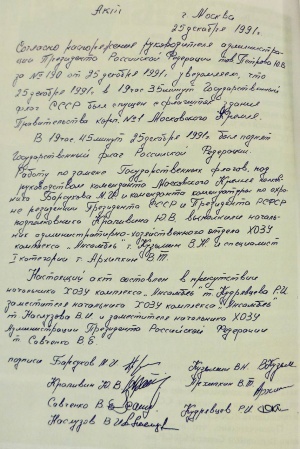 Акт
г Москва
25 декабря 1991г.
Согласно распоряжения руководителя администра-
ции Президента Российской Федерации тов Петрова Ю.В.
за № 190 от 25 декабря 1991, уведомляем, что
25 декабря 1991, в 19 час 35 минут Государственный
флаг СССР был спущен с флагштока здания
Правительства корп. №1 Московского Кремля.
В 19 час 45 минут 25 декабря 1991г. был поднят
Государственный флаг Российской Федерации.
Работу по замене Государственных флагов, под
руководством коменданта Московского Кремля
Барсукова М.И. и коменданта комендатуры по охра-
не резиденции Президента СССР и Президента РСФСР
Крапивина Ю.В. выполнили началь-
ник административно-хозяйственного отдела ХОЗУ
комплекса "Ансамбль" т. Кузьмин В.Н. и специалист
I категории т. Архипкин В.Т.
Настоящий акт составлен в присутствии
начальника ХОЗУ комплекса "Ансамбль" т. Кудрявцева Р.И.
заместителя начальника ХОЗУ комплекса "Ансамбль"
т В.И. и заместителя начальника ХОЗУ
Администрации Президента Российской Федерации
т. Савченко В.Б.
подписи Барсуков М.И
Кузьмин В.Н.
Крапивин Ю.В
Архипкин В.Т.
Савченко В.Б.
Кудрявцев Р.И
В.И.